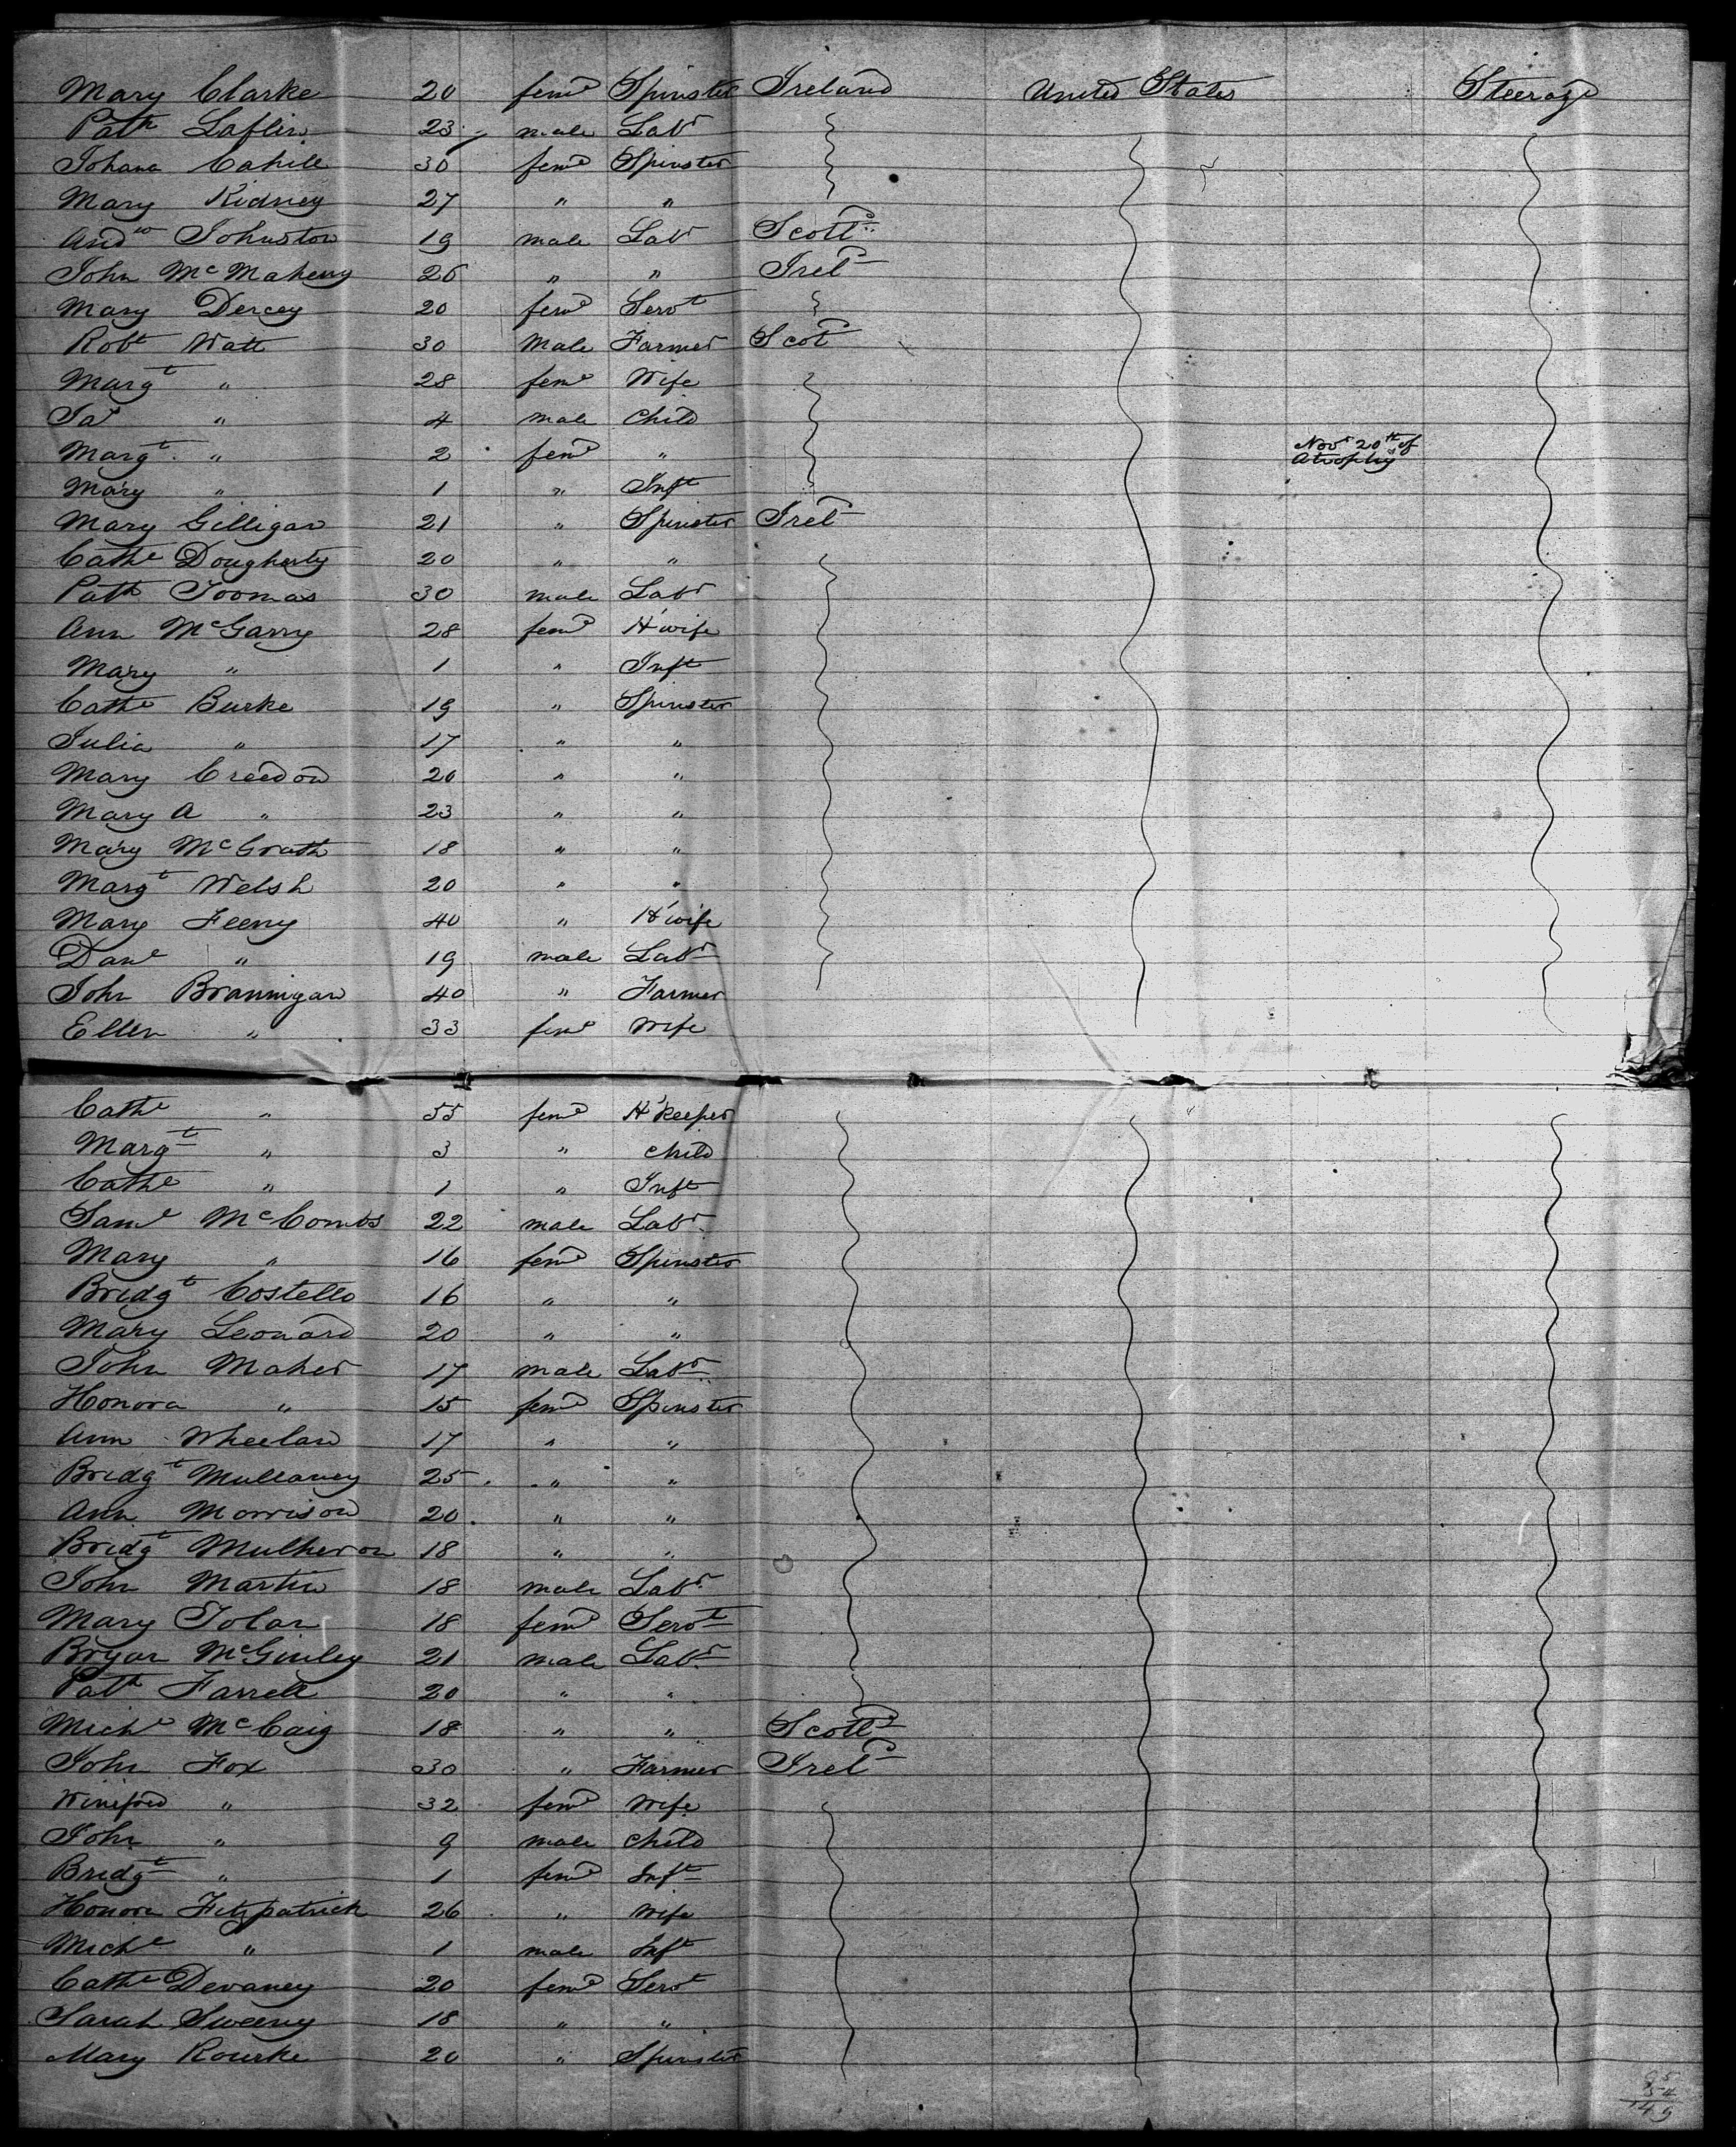 Mary Clarke 20 feme Spinster Ireland United States Steerage
Patk Laflin 23 male Labr
Johana Cahill 30 feme Spinster
Mary Kidney 27 " "
Andw Johnston 19 male Labr Scotld
John McMaheny 26 " " Ireld
Mary Dercey 20 feme Servt
Robt Watt 30 Male Farmer Scotd
Margt " 28 feme Wife
Jas " 4 male Child
Margt " 2 feme " Novr 20th of Atrophy
Mary " 1 " Inft
Mary Gilligan 21 " Spinster Ireld
Cathe Dougherty 20 " "
Patk Toomas 30 male Labr
Ann McGarry 28 feme H'wife
Mary " 1 " Inft
Cathe Burke 19 " Spinster
Julia " 17 " "
Mary Creedon 20 " "
Mary A " 23 " "
Mary McGrath 18 " "
Margt Welsh 20 " "
Mary Feeny 40 " H'wife
Danl " 19 male Labr
John Brannigan 40 " Farmer
Ellen " 33 feme Wife
Cathe " 55 feme H'keeper
Margt " 3 " Child
Cathe " 1 " Inft
Saml McCombs 22 male Labr
Mary " 16 feme Spinster
Bridgt Costello 16 " "
Mary Leonard 20 " "
John Maher 17 male Labr
Honora " 15 feme Spinster
Ann Wheelan 17 " "
Bridgt Mullaney 25 " "
Ann Morrison 20 " "
Bridgt Mulheron 18 " "
John Martin 18 male Labr
Mary Tolan 18 feme Servt
Bryan McGinley 21 male Labr
Patk Farrell 20 " "
Michl McCaig 18 " " Scotld
John Fox 30 " Farmer Ireld
Winifred " 32 feme Wife
John " 9 male Child
Bridgt " 1 feme Inft
Honora Fitzpatrick 26 " Wife
Michl " 1 male Inft
Cathe Devaney 20 feme Servt
Sarah Sweeny 18 " "
Mary Rourke 20 " Spinster
95
54
149